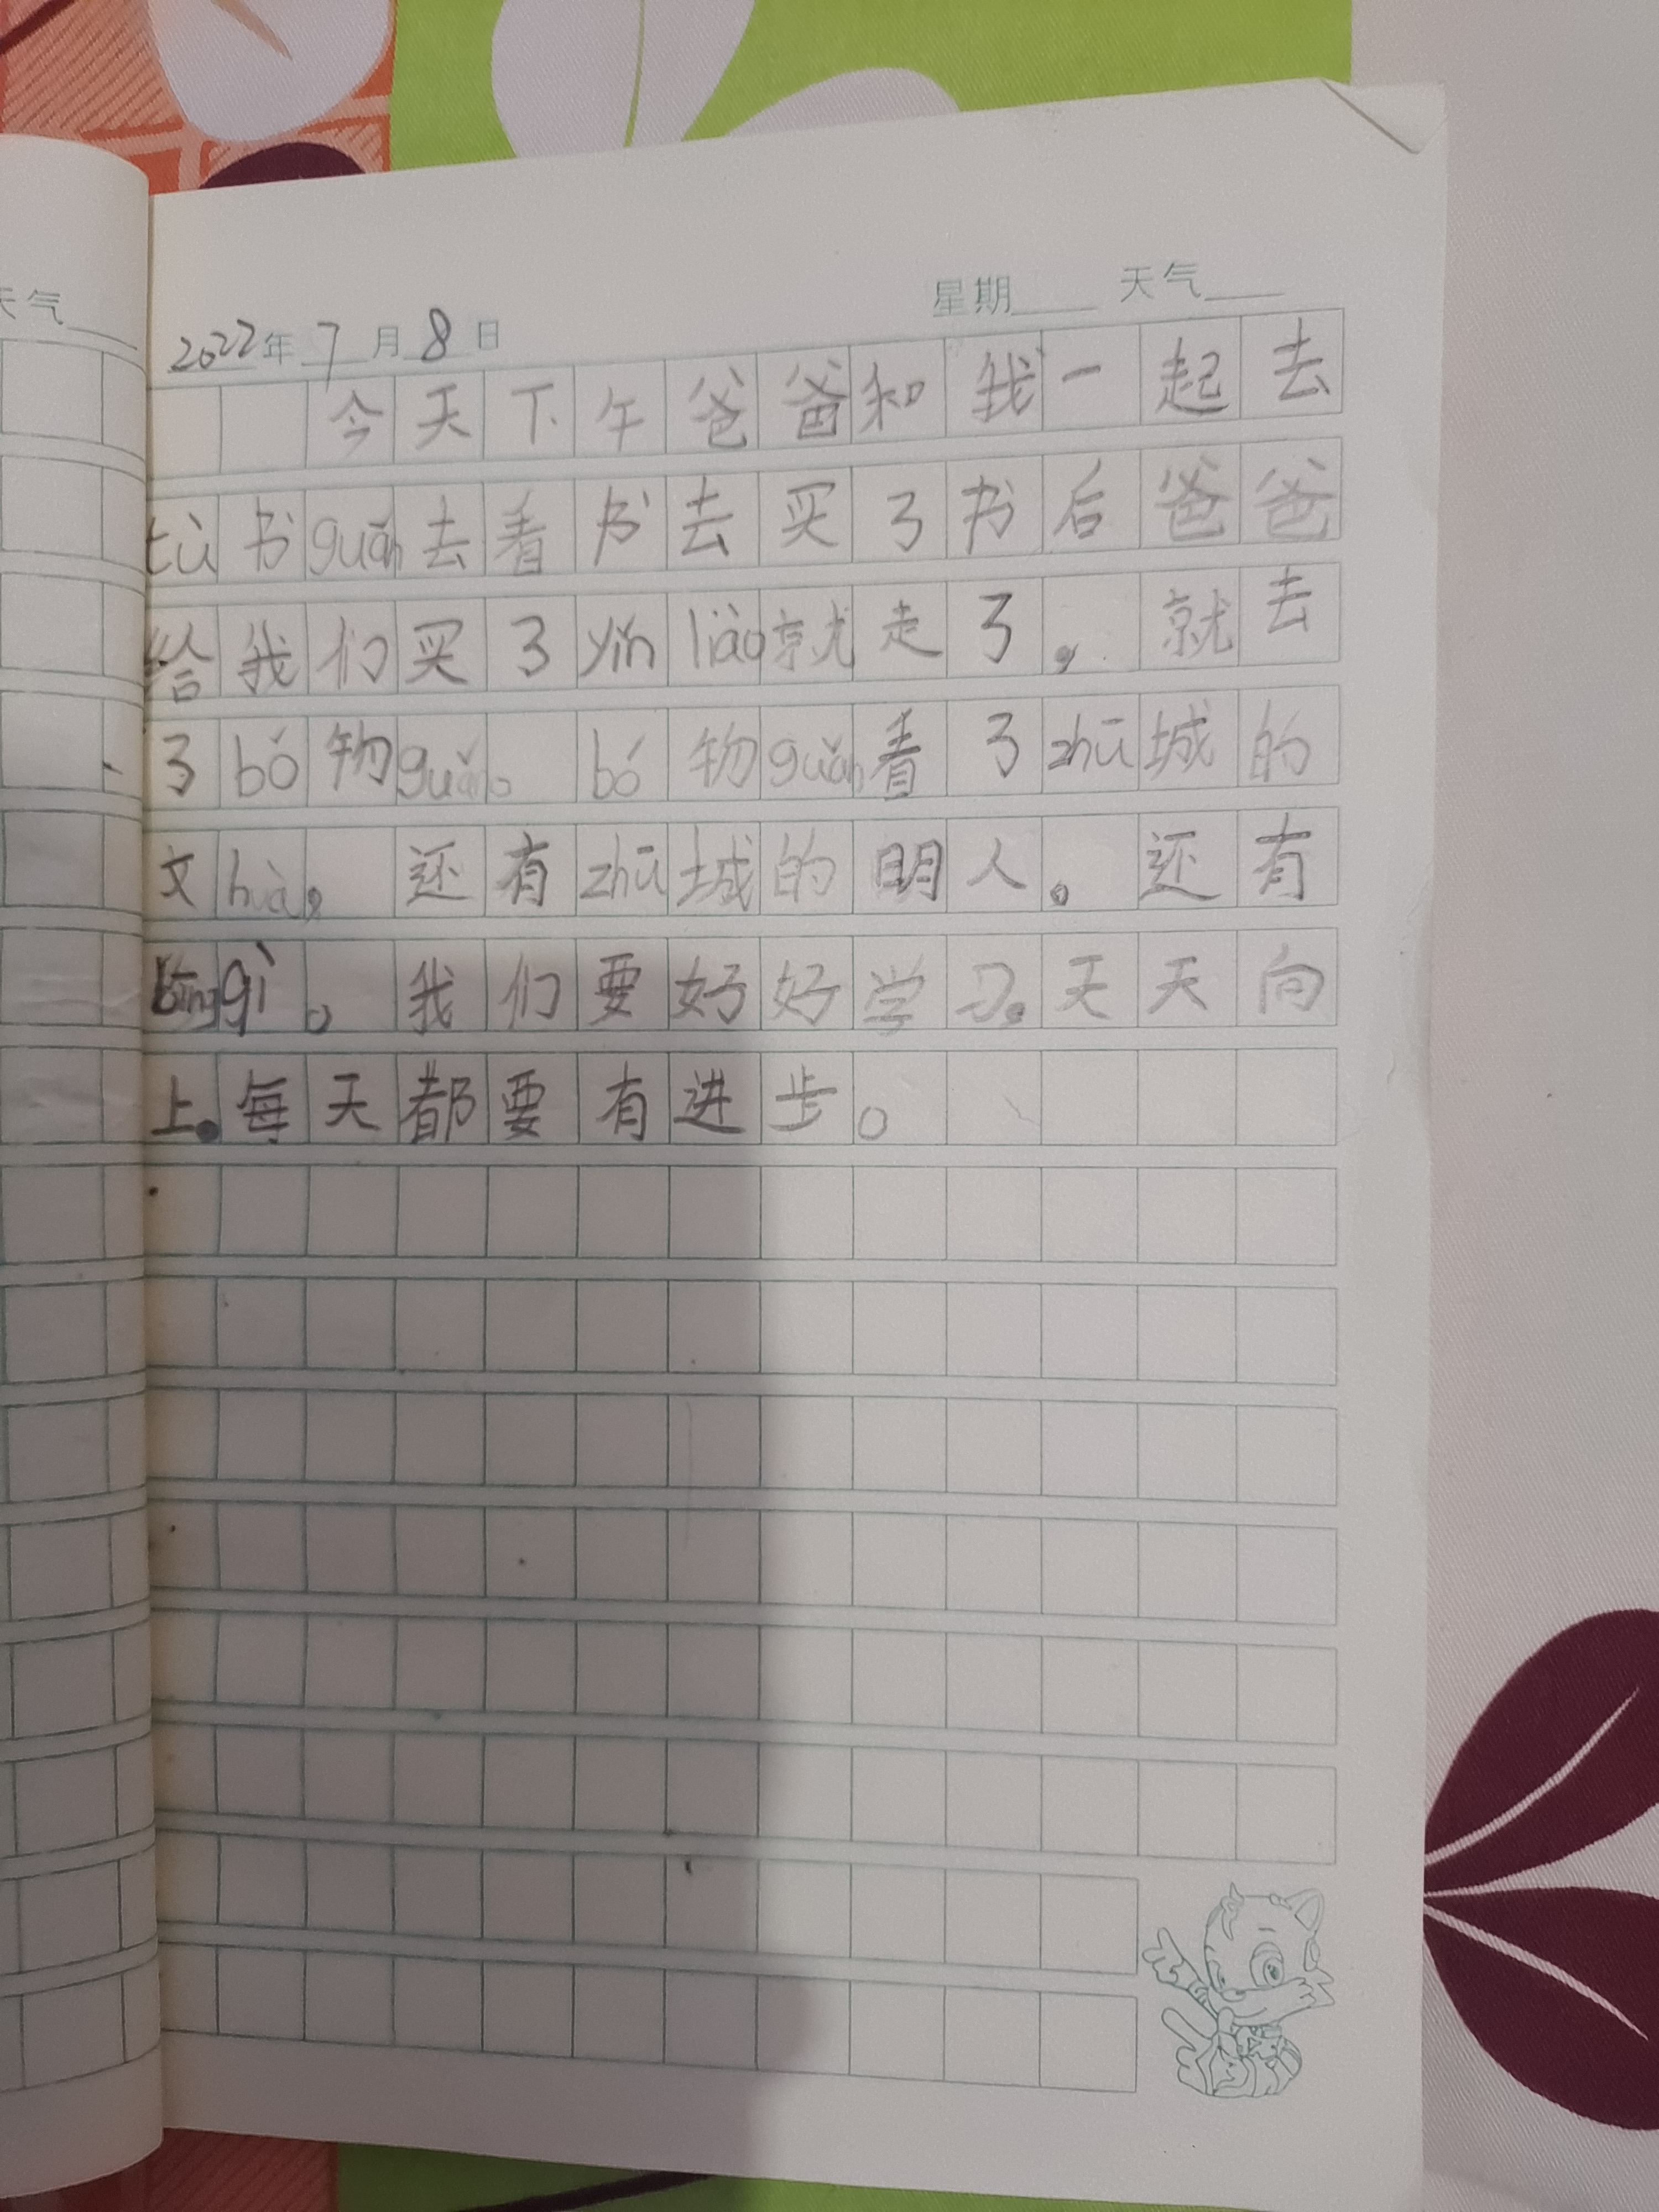 天气
星期 天气
2022年 7 月 8 日
今天下午爸爸和我一起去
tú书guǎn去看书去买了书后爸爸
给我们买了yǐn liào就走了，就去
了bó物guǎn。bó物guǎn看了zhū城的
文huà，还有zhū城的明人。还有
bīng qì。我们要好好学习。天天向
上。每天都要有进步。